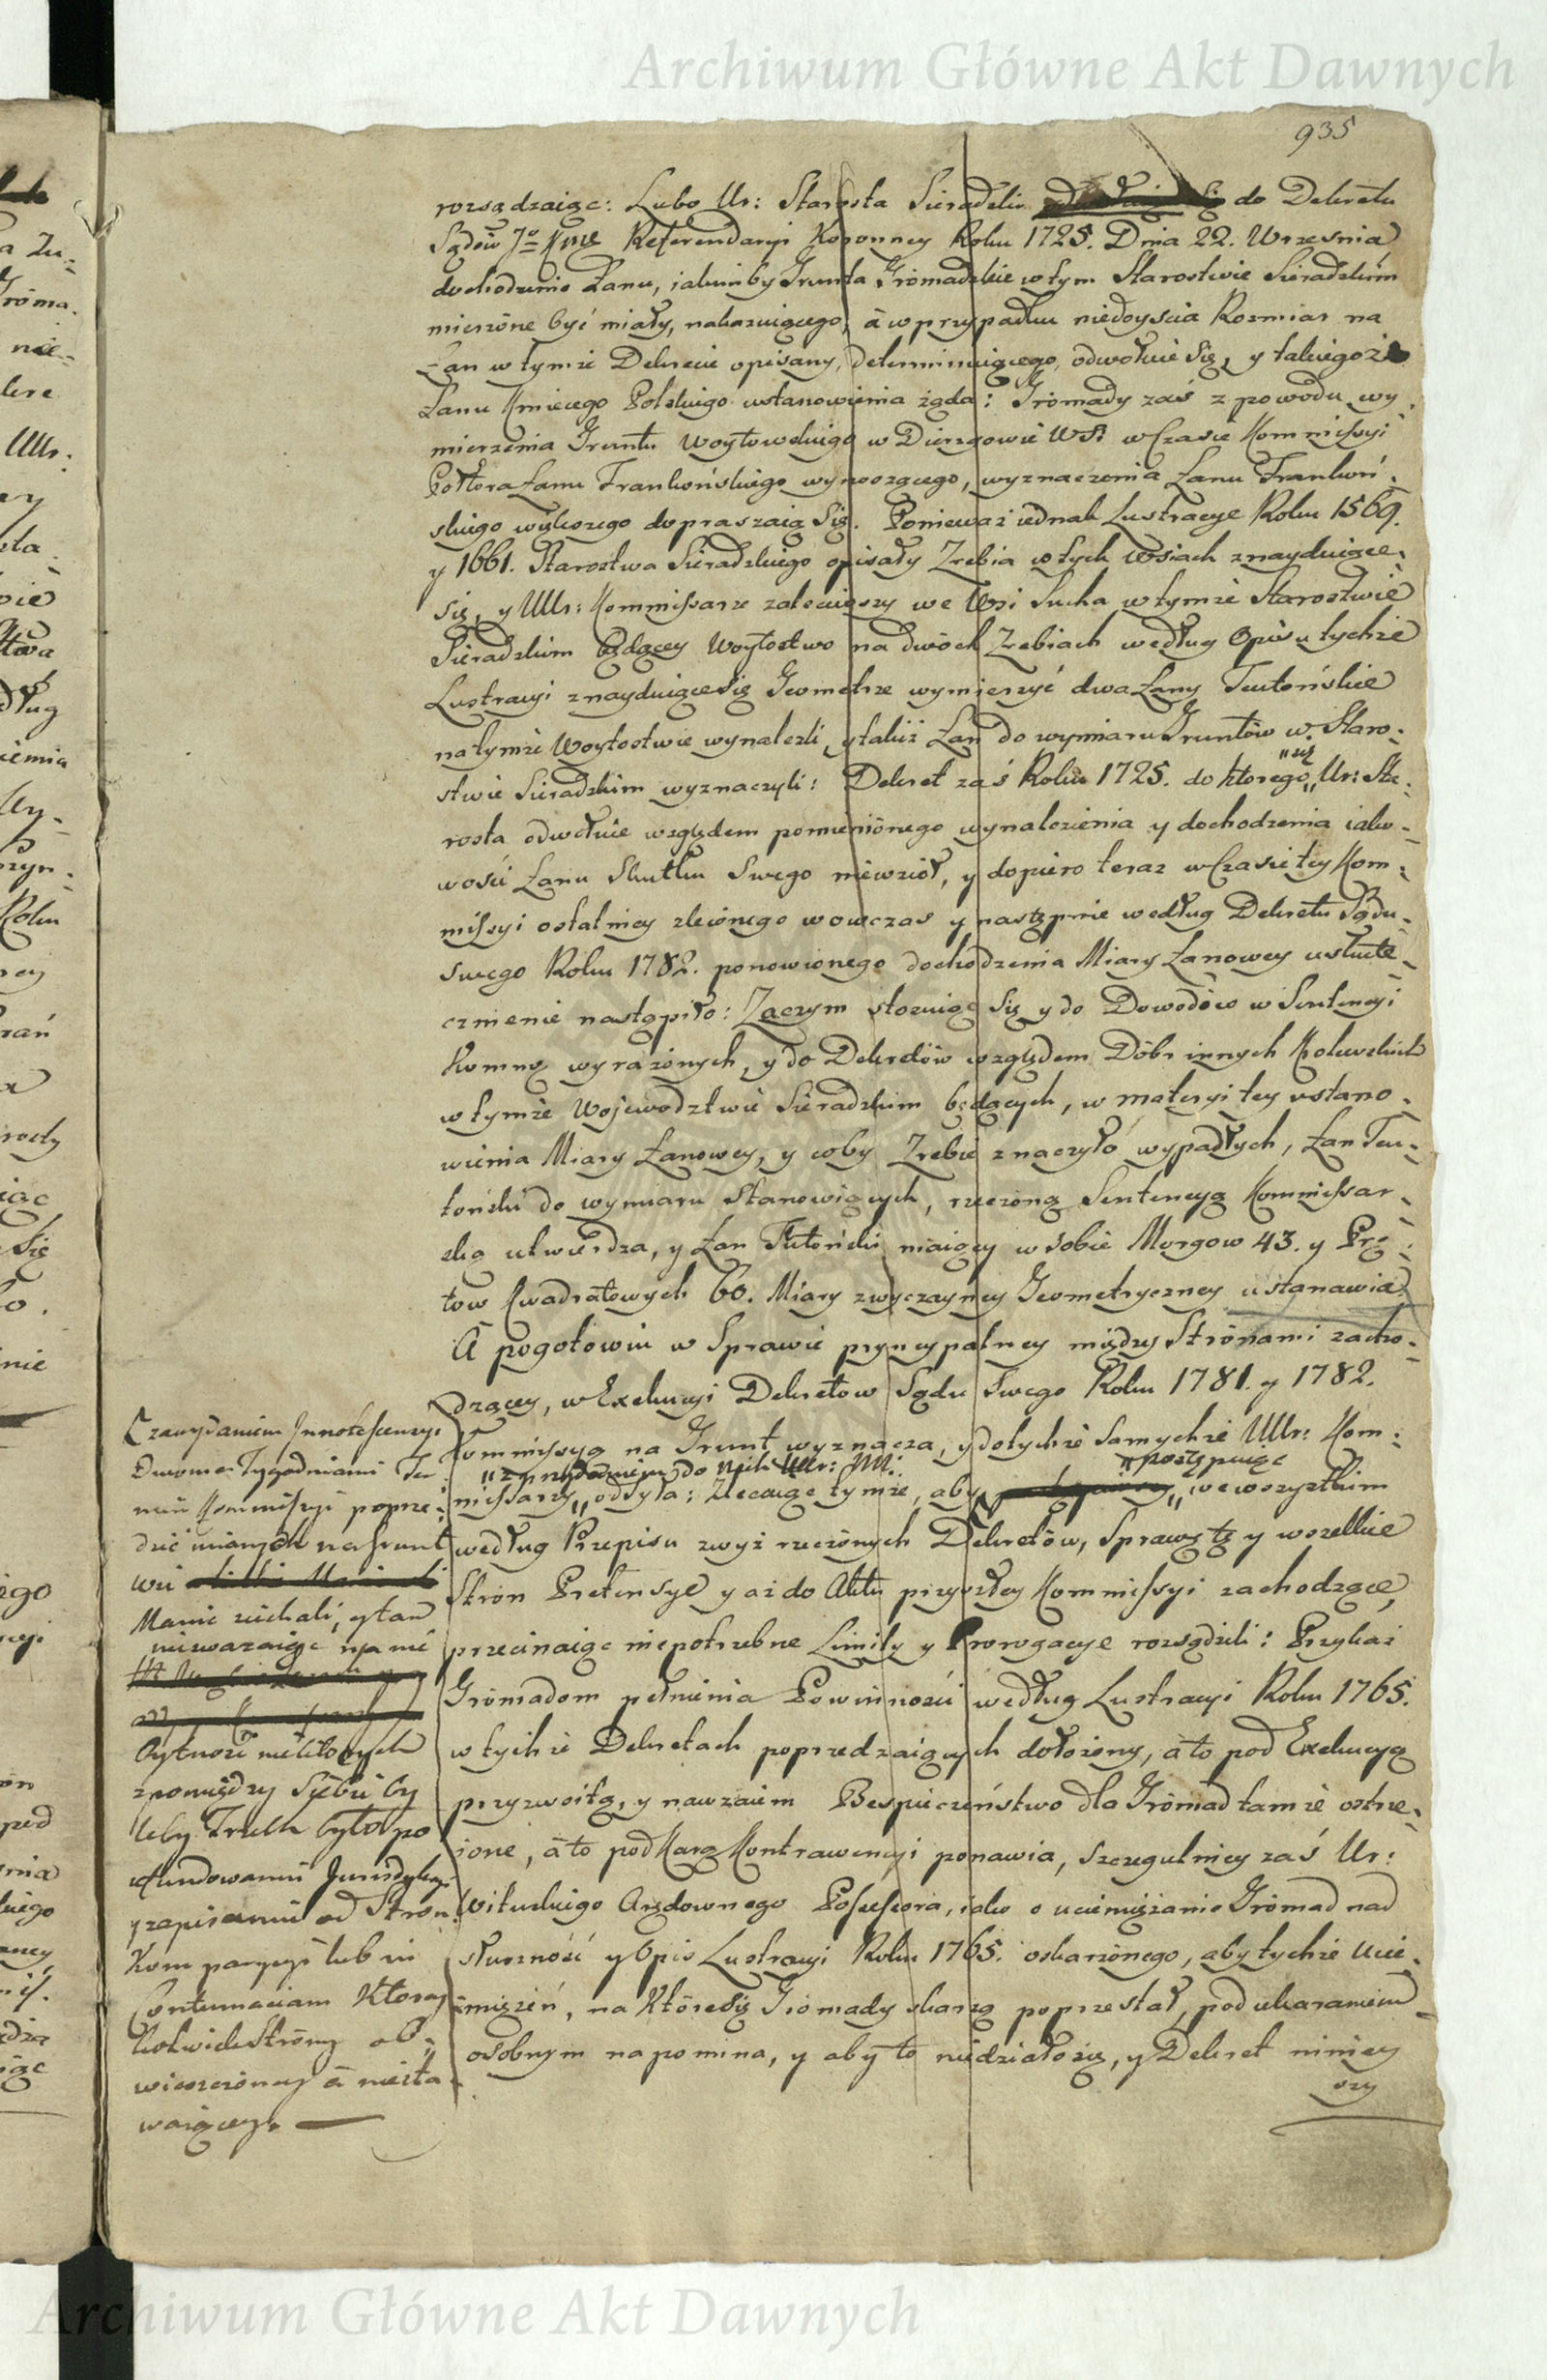 Archiwum Główne Akt Dawnych
935
rozsądzaiąc: Lubo Ur: Starosta Sieradzki do Dekretu
Sądów Referendaryi Koronney Roku 1725. Dnia 22. Wrzesnia
dochodzenie Łanu, iakimby Grunta Gromadzkie w tym Starostwie Sieradzkim
mierzóne być miały, nakazuiącego, á w przypadku niedoyscia Rozmiar na
Łan w tymże Dekrecie opisany, determinuiącego, odwołuie się, y takiegoż
Łanu Kmiecego Polskiego ustanowienia żąda: Gromady zaś z powodu wy
mierzenia Gruntu Woytowskiego w Dierzgowie Wsi w Czasie Kommissyi
Połtora Łanu Frankońskiego wynoszącego, wyznaczenia Łanu Frankoń-
skiego dopraszaią się. Ponieważ iednak Lustracye Roku 1569.
y 1661. Starostwa Sieradzkiego opisały Zrebia w tych Wsiach znayduiące
się, y UUr: Kommissarze we Wsi Sucha w tymże Starostwie
Sieradzkim będącey Woytostwo na dwóch Zrebiach według Opisu tychże
Lustracyi znayduiące się Geometrze wymierzyć dwa Łany Teutońskie
na tymże Woytostwie wynalezli, y takiż Łan do wymiaru Gruntów w Staro-
stwie Sieradzkim wyznaczyli: Dekret zaś Roku 1725. do ktorego „się„ Ur: Sta-
rosta odwołuie względem pomienionego wynalezienia y dochodzenia iako-
wości Łanu Skutku Swego niewzioł, y dopiero teraz w Czasie tey Kom-
missyi ostatniey zleconego wowczas y następnie według Dekretu Sądu
swego Roku 1782. ponowionego dochodzenia Miary Łanowey uskute-
cznienie nastąpiło: Zaczym stosuiąc się y do Dowodów w Sentencyi
Kommey wyrażonych, y do Dekretów względem Dóbr innych Krolewskich
w tymże Wojewodztwie Sieradzkim będących, w materyi tey ustano-
wienia Miary Łanowey, y coby Zrebie znaczyło wypadłych, Łan Teu-
toński do wymiaru Stanowiących, rzeczoną Sentencyą Kommissar-
ską utwierdza, y Łan Teutoński maiący w sobie Morgow 43. y Prę-
tow Kwadratowych 60. Miary zwyczayney Geometryczney ustanawia.
A pogotowiu w Sprawie pryncypalney między Strónami zacho-
dzącey, w Exekucyi Dekretow Sądu Swego Roku 1781. y 1782.
Kommissyą na Grunt wyznacza, y do tychże samychże UUr: Kom-
„z przydaniem do nich Ur:
missarzy„ odsyła: Zlecaiąc tymże, aby „postępuiąc„ we wszystkim
według Przepisu zwyż rzeczónych Dekretów, Sprawę tę y wszelkie
Strón Pretensye y aż do Aktu przyszłey Kommissyi zachodzące,
przecinaiąc niepotrzebne Limity y Prorogacye rozsądzili: Przykaz
Gromadom pełnienia Powinności według Lustracyi Roku 1765.
w tychże Dekretach poprzedzaiących dołożony, á to pod Exekucyą
przyzwoitą, y nawzaiem Bespieczeństwo dla Gromad tamże ostrze-
żone, á to pod Karą Kontrawencyi ponawia, szczegulniey zaś Ur:
Wituskiego Arędownego Possessora, iako o uciemiężanie Gromad nad
słuszność y Opis Lustracyi Roku 1765. oskarżónego, aby tychże Ucie-
miężeń, na które się Gromady skarżą poprzestał, pod ukaraniem
osobnym napomina, y aby to niedziało się, y Dekret niniey
szy
z wydaniem Innotescencyi
Dwoma Tygodniami Ter
min Kommissyi poprze-
dzić maiących na Grunt
Wsi
Manic ziechali, y tam
niezważaiąc na nie
bytność niektórych
z pomiędzy Siebie by
leby Trzech było po
ufundowaniu Jurisdykcyi
y zapisaniu od Stron
Komparycyi lub in
Contumaciam Ktorey
kolwiek Strony ob-
wieszczóney á niesta-
waiącey.
Archiwum Główne Akt Dawnych